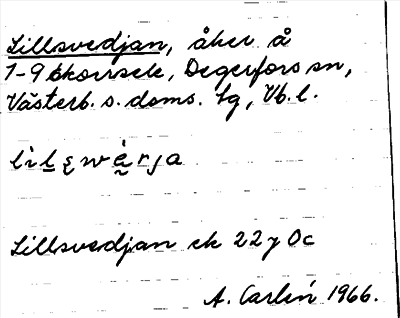 Lillsvedjan, åker å
1-9 Ekorrsele, Degerfors sn,
Västerb. s. doms. lg, Vb. l.
Lillsvedjan ek 22 y 0c
A. Carlin 1966.